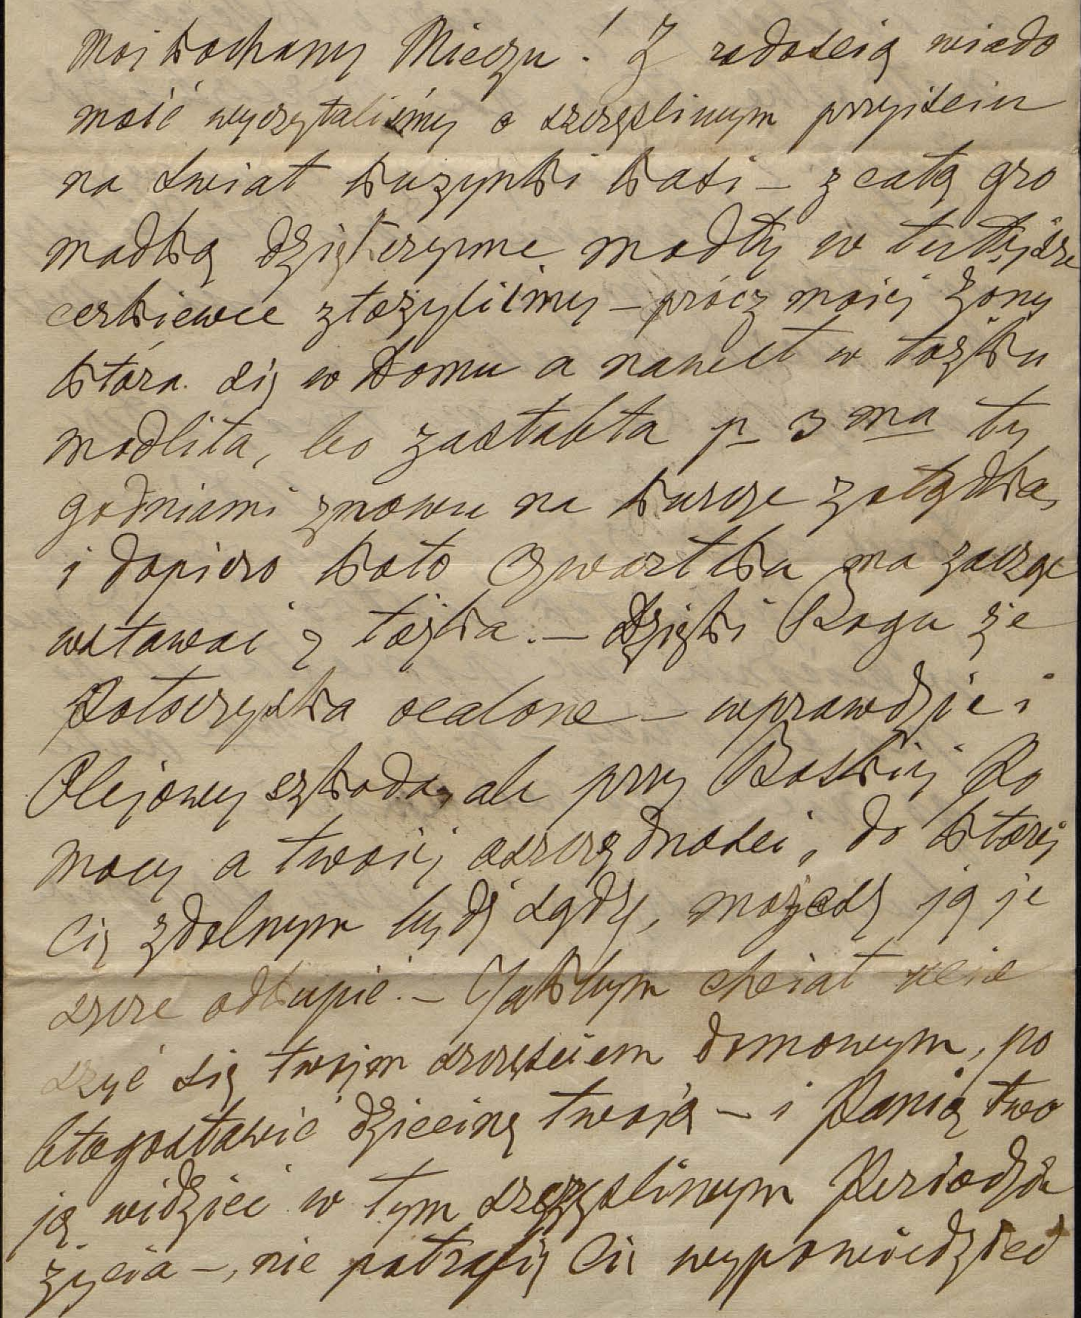 Mój kochany Mieczu! Z radością wiado
mość wyczytaliśmy o szczęśliwym przyjściu
na świat kuzynki Kasi – z całą gro
madką dziękczynne modły w tutejsze
cerkiewce złożyliśmy – prócz mojej żony
która się w domu a nawet w łóżku
modliła, bo zasłabła p 3 ma ty
godniami znowu na kurcze żołądka,
i dopiero koło czwartku ma zacząć
wstawać z łóżka. – Dzięki Bogu że
Potoczyska ocalone – wprawdzie i
Olejowy szkoda, ale przy Boskiej Po
mocy a twojej oszczędności, do której
Cię zdolnym być sądzę, możesz ją je
szcze odkupić. – Jakbym chciał ucie
szyć się twojem szczęściem domowym, po
błogosławić dziecinę twoją – i Panią two
ją widzieć w tym szczęśliwym Periodzie
życia –, nie potrafię Ci wypowiedzieć